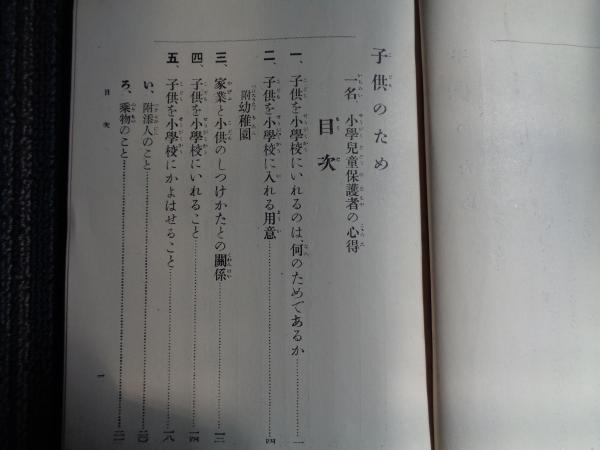 子供のため
一名 小學兒童保護者の心得
目次
一、子供を小學校にいれるのは、何のためであるか……一
二、子供を小學校に入れる用意……四
附幼稚園
三、家業と小供のしつけかたとの關係……一三
四、子供を小學校にいれること……一四
五、子供を小學校にかよはせること……一八
い、附添人のこと……二〇
ろ、乘物のこと……二一
目次
一